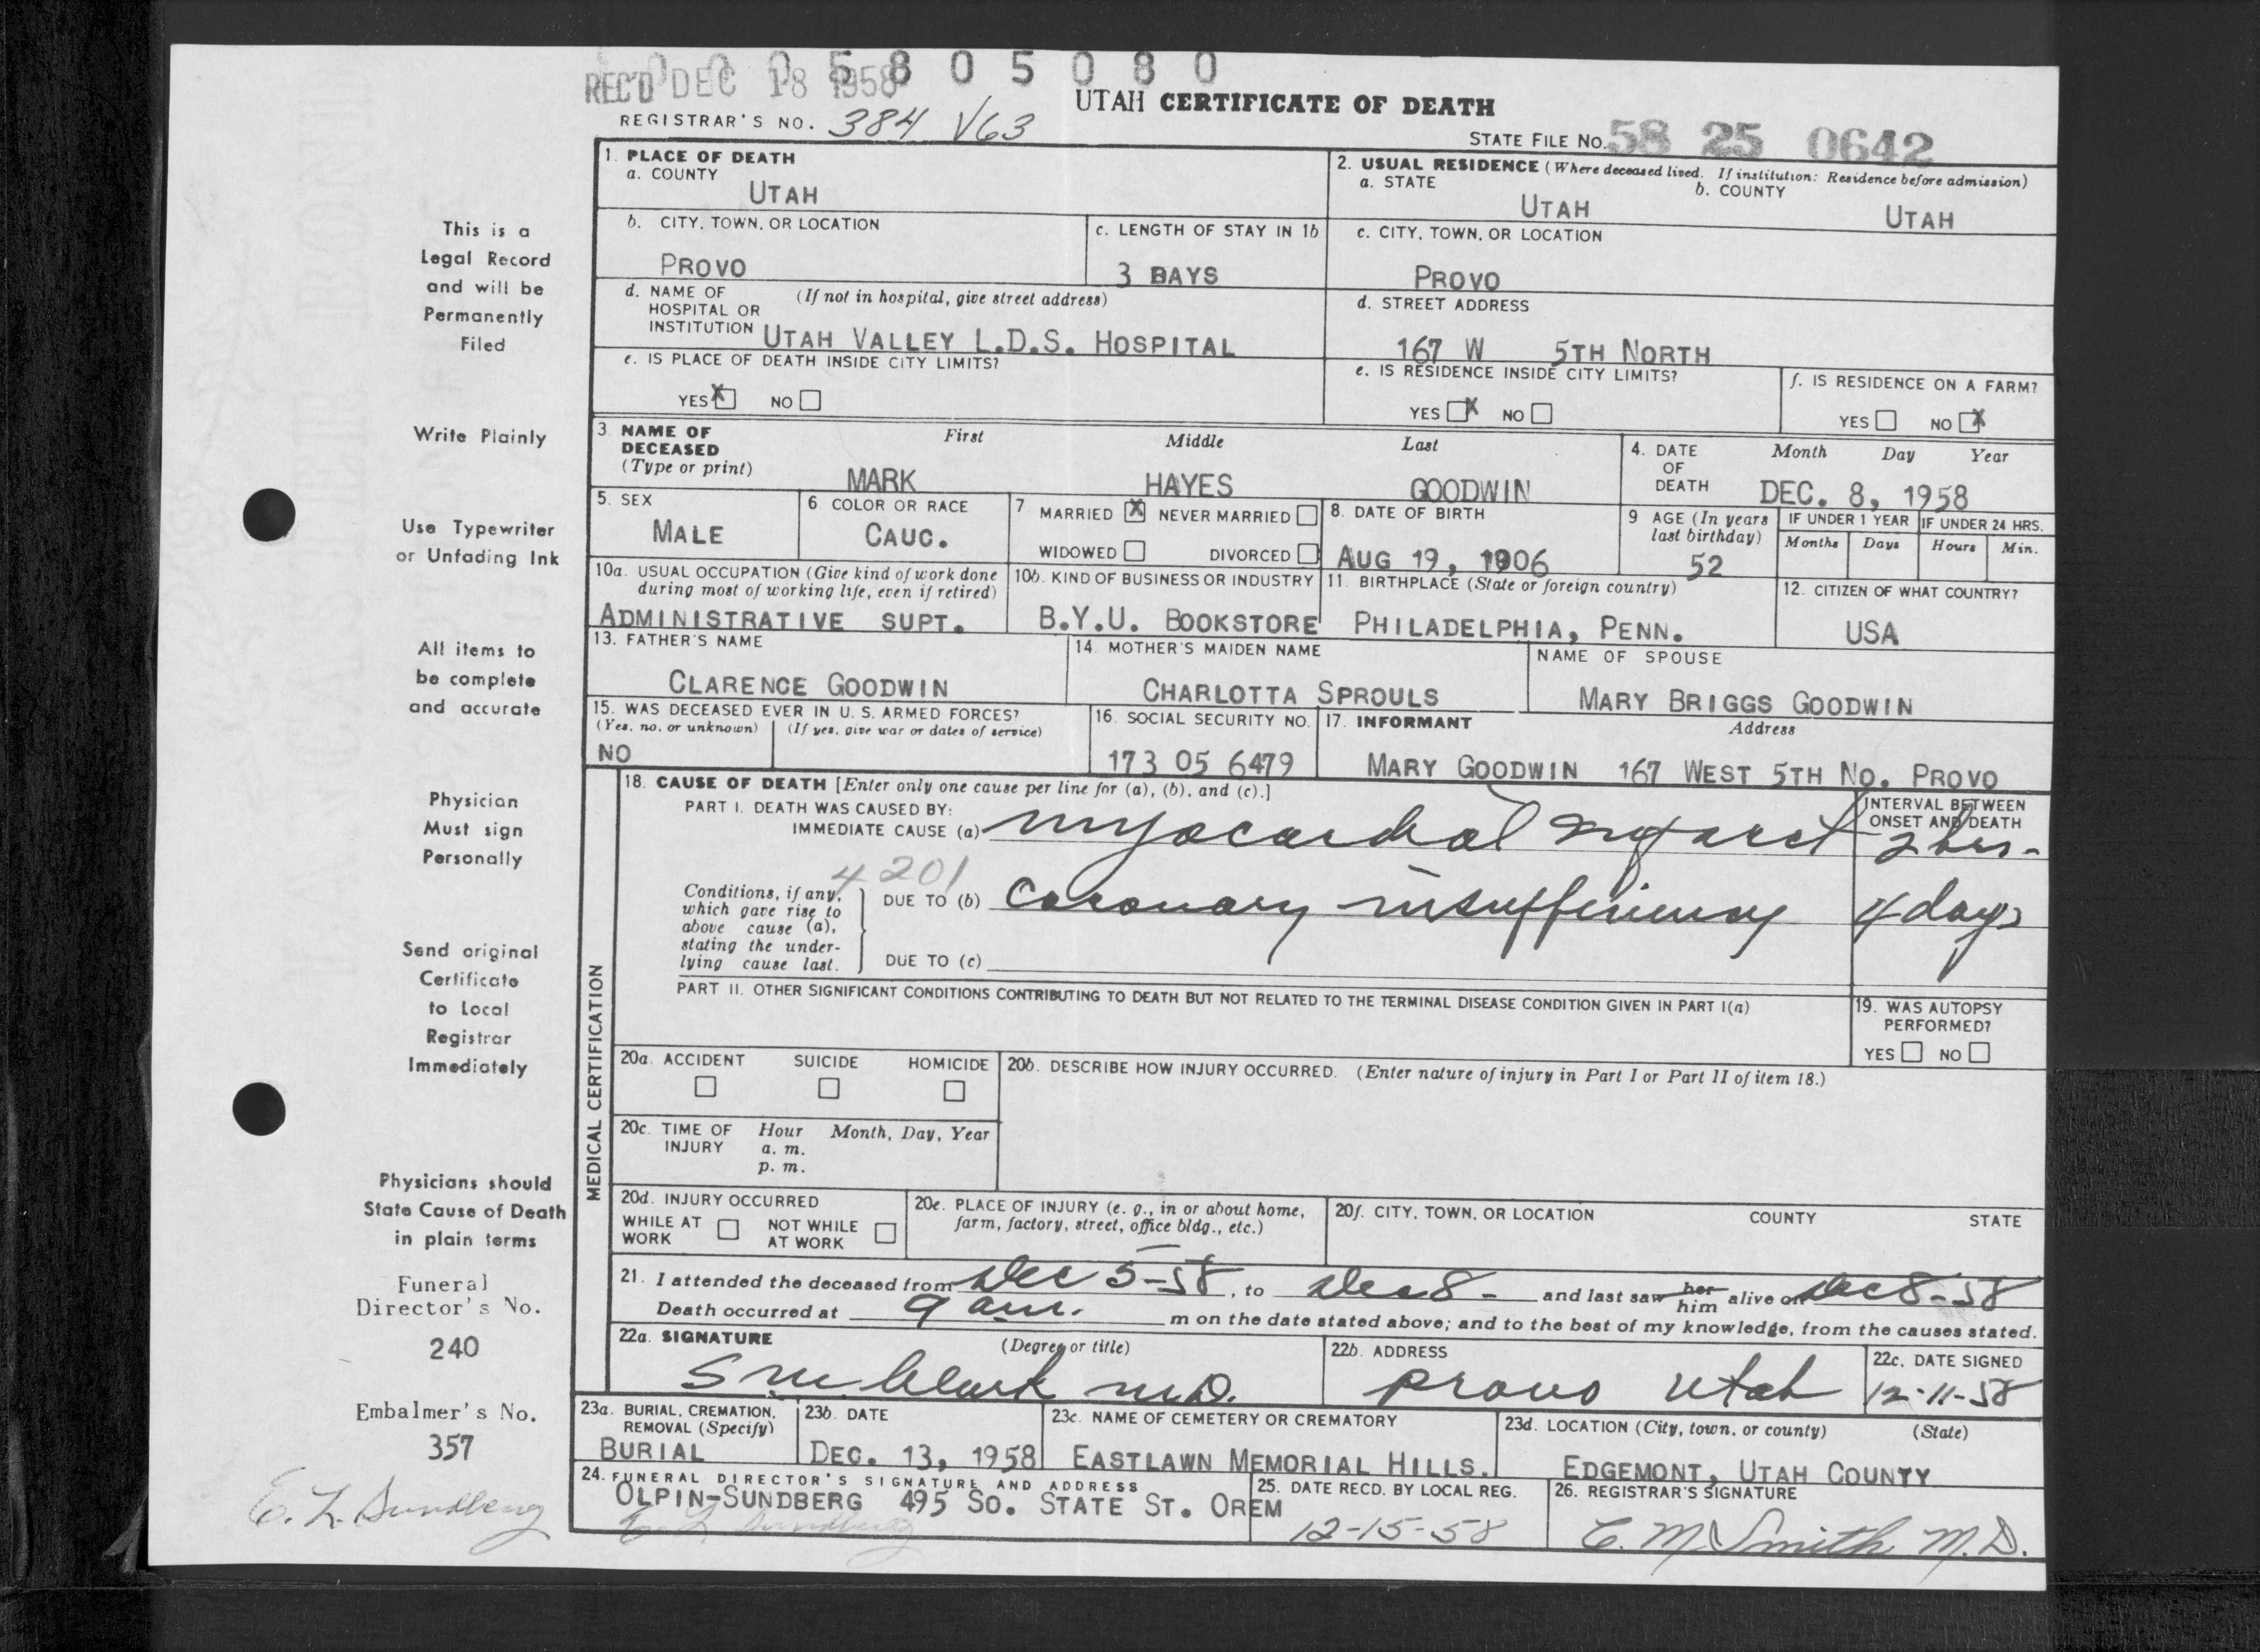 0 0 0 5 8 0 5 0 8 0
REC'D DEC 18 1958
UTAH CERTIFICATE OF DEATH
REGISTRAR'S NO. 384 V63
STATE FILE NO. 58 25 0642
1. PLACE OF DEATH
a. COUNTY
UTAH
2. USUAL RESIDENCE (Where deceased lived. If institution: Residence before admission)
a. STATE b. COUNTY
UTAH UTAH
b. CITY, TOWN, OR LOCATION
PROVO
c. LENGTH OF STAY IN 1b
3 BAYS
c. CITY, TOWN, OR LOCATION
PROVO
d. NAME OF (If not in hospital, give street address)
HOSPITAL OR
INSTITUTION UTAH VALLEY L.D.S. HOSPITAL
d. STREET ADDRESS
167 W 5TH NORTH
e. IS PLACE OF DEATH INSIDE CITY LIMITS?
YES X NO
e. IS RESIDENCE INSIDE CITY LIMITS?
YES X NO
f. IS RESIDENCE ON A FARM?
YES NO X
3. NAME OF First Middle Last
DECEASED
(Type or print)
MARK HAYES GOODWIN
4. DATE Month Day Year
OF
DEATH DEC. 8, 1958
5. SEX
MALE
6 COLOR OR RACE
CAUC.
7 MARRIED X NEVER MARRIED
WIDOWED DIVORCED
8. DATE OF BIRTH
AUG 19, 1906
9 AGE (In years
last birthday)
52
IF UNDER 1 YEAR IF UNDER 24 HRS.
Months Days Hours Min.
10a. USUAL OCCUPATION (Give kind of work done
during most of working life, even if retired)
ADMINISTRATIVE SUPT.
10b. KIND OF BUSINESS OR INDUSTRY
B.Y.U. BOOKSTORE
11. BIRTHPLACE (State or foreign country)
PHILADELPHIA, PENN.
12. CITIZEN OF WHAT COUNTRY?
USA
13. FATHER'S NAME
CLARENCE GOODWIN
14. MOTHER'S MAIDEN NAME
CHARLOTTA SPROULS
NAME OF SPOUSE
MARY BRIGGS GOODWIN
15. WAS DECEASED EVER IN U. S. ARMED FORCES?
(Yes, no, or unknown) (If yes, give war or dates of service)
NO
16. SOCIAL SECURITY NO.
173 05 6479
17. INFORMANT Address
MARY GOODWIN 167 WEST 5TH NO. PROVO
MEDICAL CERTIFICATION
18. CAUSE OF DEATH [Enter only one cause per line for (a), (b), and (c).]
PART I. DEATH WAS CAUSED BY:
IMMEDIATE CAUSE (a) myocardial infarct
INTERVAL BETWEEN
ONSET AND DEATH
2 hrs-
4201
Conditions, if any,
which gave rise to
above cause (a),
stating the under-
lying cause last.
DUE TO (b) coronary insufficiency 4 days
DUE TO (c)
PART II. OTHER SIGNIFICANT CONDITIONS CONTRIBUTING TO DEATH BUT NOT RELATED TO THE TERMINAL DISEASE CONDITION GIVEN IN PART I(a)
19. WAS AUTOPSY
PERFORMED?
YES NO
20a. ACCIDENT SUICIDE HOMICIDE
20b. DESCRIBE HOW INJURY OCCURRED. (Enter nature of injury in Part I or Part II of item 18.)
20c. TIME OF Hour Month, Day, Year
INJURY a. m.
p. m.
20d. INJURY OCCURRED
WHILE AT NOT WHILE
WORK AT WORK
20e. PLACE OF INJURY (e. g., in or about home,
farm, factory, street, office bldg., etc.)
20f. CITY, TOWN, OR LOCATION COUNTY STATE
21. I attended the deceased from Dec 5-58, to Dec 8- and last saw her him alive on Dec 8-58
Death occurred at 9 am. m on the date stated above; and to the best of my knowledge, from the causes stated.
22a. SIGNATURE (Degree or title)
S M Clark M.D.
22b. ADDRESS
Provo Utah
22c. DATE SIGNED
12-11-58
23a. BURIAL, CREMATION,
REMOVAL (Specify)
BURIAL
23b. DATE
DEC. 13, 1958
23c. NAME OF CEMETERY OR CREMATORY
EASTLAWN MEMORIAL HILLS.
23d. LOCATION (City, town, or county) (State)
EDGEMONT, UTAH COUNTY
24. FUNERAL DIRECTOR'S SIGNATURE AND ADDRESS
OLPIN-SUNDBERG 495 SO. STATE ST. OREM
E. L. Sundberg
25. DATE RECD. BY LOCAL REG.
12-15-58
26. REGISTRAR'S SIGNATURE
C. M. Smith M.D.
This is a
Legal Record
and will be
Permanently
Filed
Write Plainly
Use Typewriter
or Unfading Ink
All items to
be complete
and accurate
Physician
Must sign
Personally
Send original
Certificate
to Local
Registrar
Immediately
Physicians should
State Cause of Death
in plain terms
Funeral
Director's No.
240
Embalmer's No.
357
E. L. Sundberg